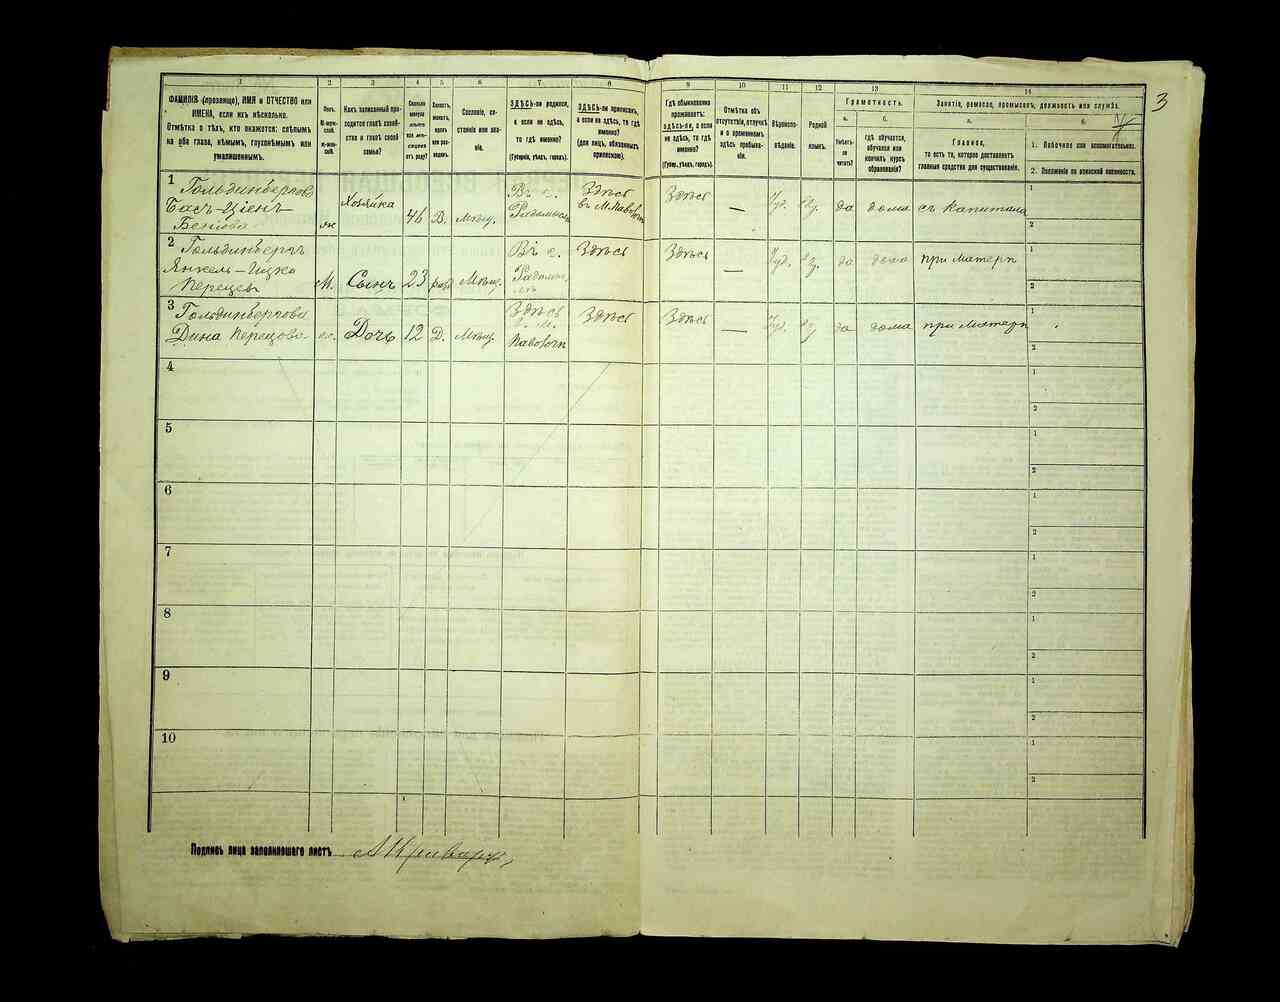 3
1 2 3 4 5 6 7 8 9 10 11 12 13 14
ФАМИЛІЯ (прозвище), ИМЯ и ОТЧЕСТВО или
ИМЕНА, если ихъ нѣсколько.
Отмѣтка о тѣхъ, кто окажется: слѣпымъ
на оба глаза, нѣмымъ, глухонѣмымъ или
умалишеннымъ.
Полъ.
М-мужс-
кой.
Ж-жен-
скій.
Какъ записанный при-
ходится главѣ хозяй-
ства и главѣ своей
семьи?
Сколько
минуло
лѣтъ
или мѣ-
сяцевъ
отъ роду?
Холостъ,
женатъ,
вдовъ
или раз-
веденъ.
Сословіе, со-
стояніе или зва-
ніе.
ЗДѢСЬ-ли родился,
а если не здѣсь,
то гдѣ именно?
(Губернія, уѣздъ, городъ).
ЗДѢСЬ-ли приписанъ,
а если не здѣсь, то гдѣ
именно?
(для лицъ, обязанныхъ
припискою).
Гдѣ обыкновенно
проживаетъ:
здѣсь-ли, а если
не здѣсь, то гдѣ
именно?
(Губер., уѣздъ, городъ).
Отмѣтка объ
отсутствіи, отлучкѣ
и о временномъ
здѣсь пребыва-
ніи.
Вѣроиспо-
вѣданіе.
Родной
языкъ.
Грамотность.
а.
Умѣетъ-
ли
читать?
б.
гдѣ обучается,
обучался или
кончилъ курсъ
образованія?
Занятіе, ремесло, промыселъ, должность или служба.
а.
Главное,
то есть то, которое доставляетъ
главныя средства для существованія.
б.
1. Побочное или вспомогательное.
2. Положеніе по воинской повинности.
1 Гольдинбергова
Бася-Ціен-
Бенцова
ж
Хозяйка
46
В.
Мѣщ.
Радомысл
Здѣсь
Здѣсь
—
Іуд.
да
дома
съ капитала
1
2
2 Гольдинбергъ
Янкель-Ицко
Перецевъ
М.
Сынъ
23
Мѣщ.
Здѣсь
Здѣсь
—
Іуд.
да
дома
при матери
1
2
3 Гольдинбергова
Дина Перецова
Дочь
12
Д.
Мѣщ.
Здѣсь
Здѣсь
Здѣсь
—
Іуд.
да
дома
при матери
1
2
4
1
2
5
1
2
6
1
2
7
1
2
8
1
2
9
1
2
10
1
2
Подпись лица заполнившаго листъ